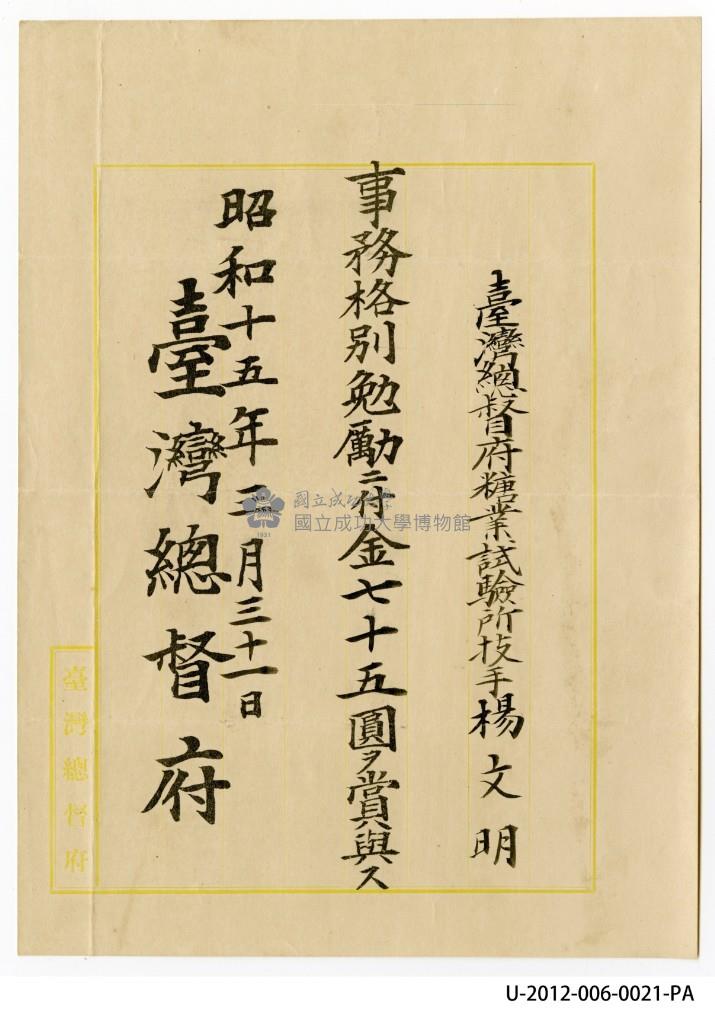 臺灣總督府糖業試驗所技手楊文明
事務格別勉勵ニ付金七十五圓ヲ賞與ス
昭和十五年三月三十一日
臺灣總督府
臺灣總督府
國立成功大學
國立成功大學博物館
1931
U-2012-006-0021-PA